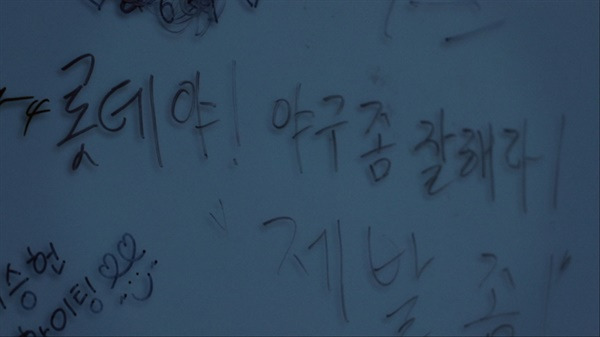 롯데야! 야구좀 잘해라!
제발 좀!
승현
화이팅